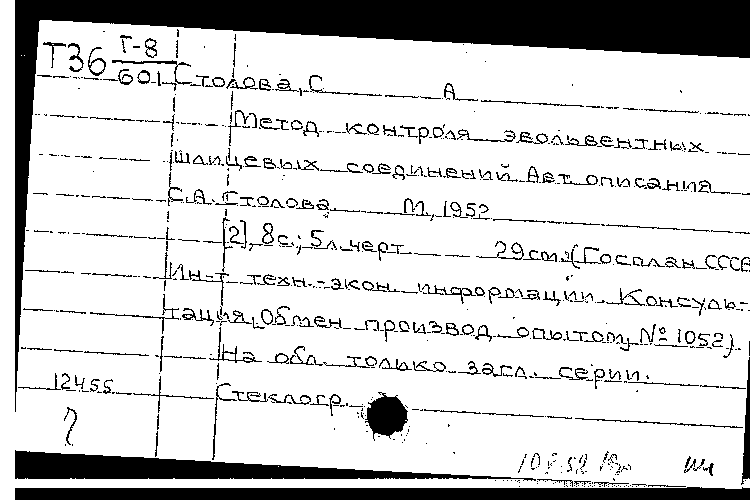 Т36 Т-8
601 Столова, С А
Метод контроля эвольвентных
шлицевых соединений. Авт. описания
С.А. Столова. М, 1952
[2], 8 с.; 5 л. черт 29 см. (Госплан СССР
Ин-т техн.-экон. информации. Консуль-
тация, Обмен производ. опытом, № 1052).
На обл. только загл. серии.
12455 Стеклогр.